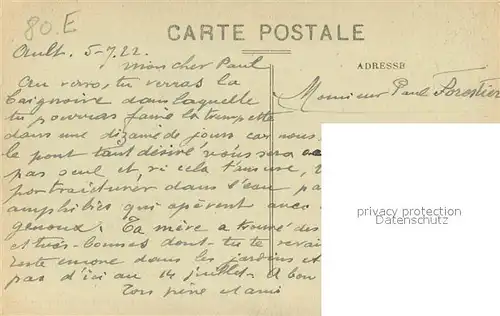 80.E
CARTE POSTALE
Ault. 5-7.22.
Mon cher Paul
ADRESSE
Au verso, tu verras la
baignoire dans laquelle
Monsieur Paul Forestier
tu pourras faire la trempette
dans une dizaine de jours car nous
le pont tant désiré vous sera
pas seul et, si cela t'amuse,
portraicturer dans l'eau
amphibies qui opèrent avec
genoux. Ta mère a trouvé des
et très bonnes dont tu te
reste encore dans les jardins et
pas d'ici au 14 juillet. A bon
Ton père et ami
privacy protection
Datenschutz